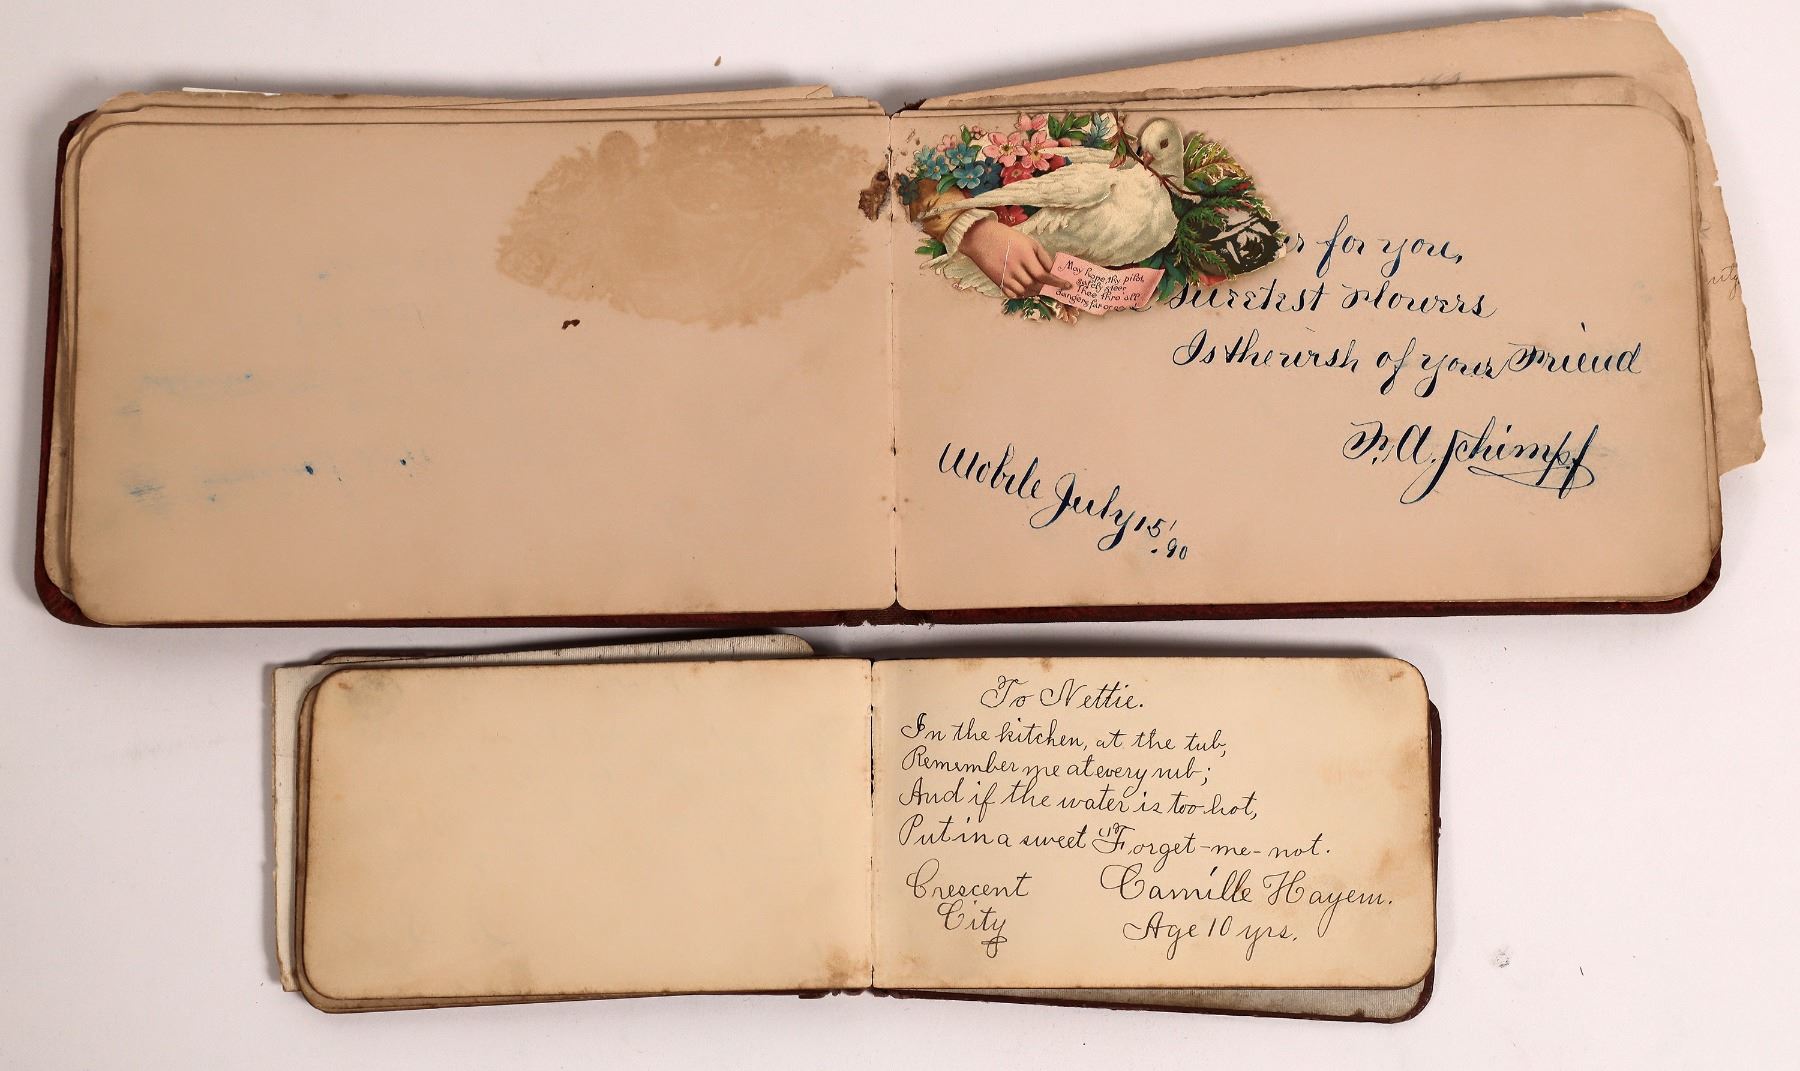 May hope thy pilot,
safely steer
Thee thro all
dangers far or
for you,
Sweetest Flowers
Is the wish of your Friend
F. A. Schimpf
Mobile July 15'
-90
To Nettie.
In the kitchen, at the tub,
Remember me at every rub;
And if the water is too hot,
Put in a sweet "Forget-me-not.
Crescent
City
Camille Hayem.
Age 10 yrs.